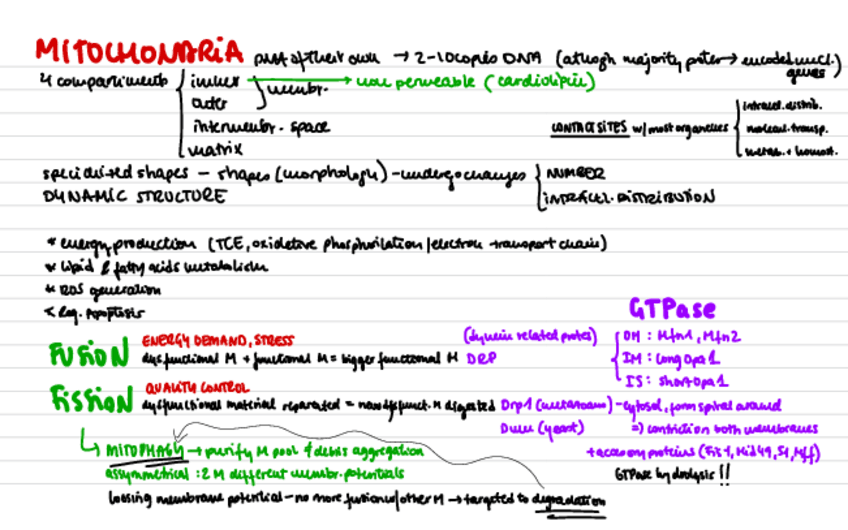 MITOCHONARIA DNA of their own → 2-10 copies DNA (although majority protei → encoded nucl. genes)
4 compartiments { inner → non permeable (cardiolipin)
outer } membr.
intermembr. space
matrix
CONTACT SITES w/ most organelles { intracel. distrib.
molecul. transp.
metab. + homeost.
specialised shapes – shapes (morphologie) – undergo changes { NUMBER
DYNAMIC STRUCTURE INTRACEL. DISTRIBUTION
* energy production (TCE, oxidetive phosphorilation / electron transport chain)
* lipid & fatty acids metabolism
* ROS generation
* Reg. Apoptosis
GTPase
FUSION ENERGY DEMAND, STRESS
dysfunctional M + functional M = bigger functional M
(dynein related protes)
DRP
{ OM : Mfn1, Mfn2
IM : long Opa1
IS : short Opa1
FISSION QUALITY CONTROL
dysfunctional material separated = new dysfunct. M digested
Drp1 (metazoans) – cytosol, form spiral around
Dnm (yeast) ⇒ contriction both membranes
+ accessory proteins (Fis1, Mid49, 51, Mff)
GTPase hydrolysis !!
↳ MITOPHAGY → purify M pool & debris aggregation
assymmetrical : 2 M different membr. potentials
loosing membrane potential – no more fusion w/ other M → targeted to degradation